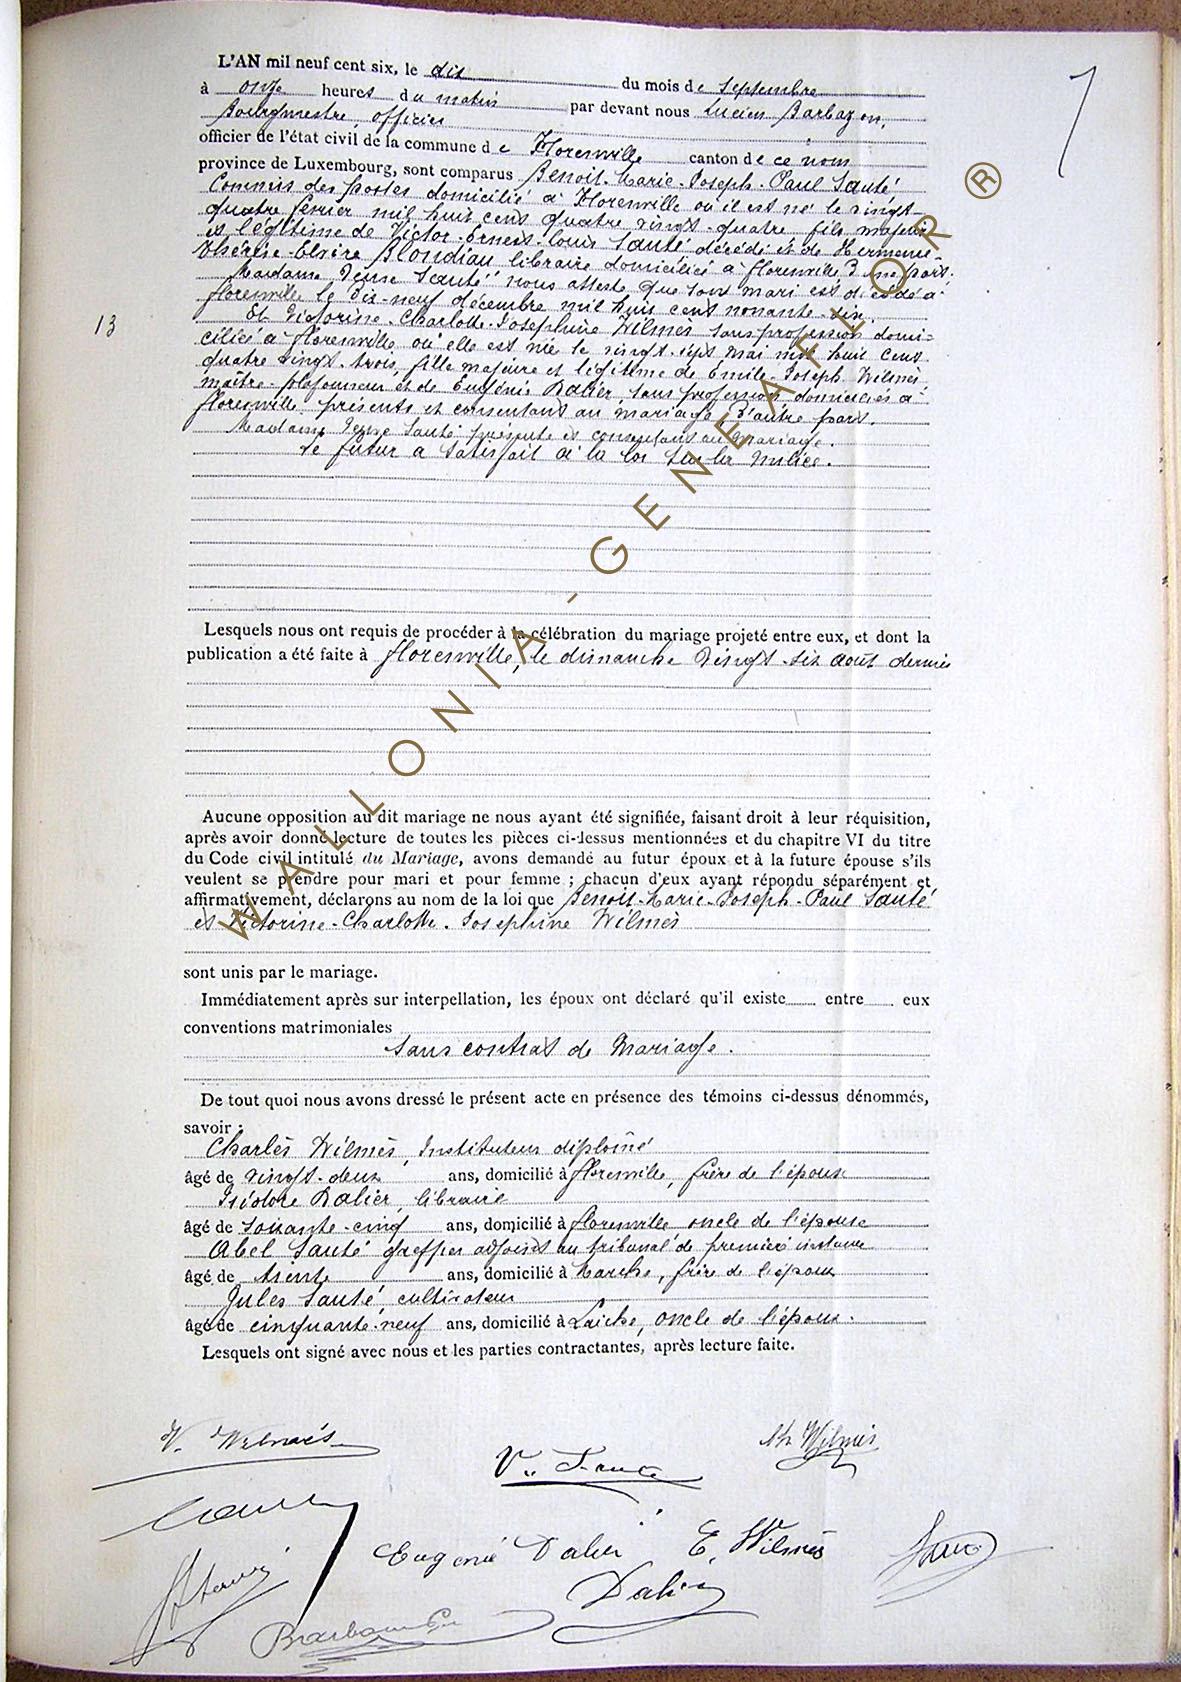 L'AN mil neuf cent six, le dix du mois de Septembre
à onze heures du matin par devant nous Lucien Barbazon,
Bourgmestre, officier
officier de l'état civil de la commune de Florenville canton de ce nom
province de Luxembourg, sont comparus Benoit-Marie-Joseph-Paul Sauté
Commis des postes domicilié à Florenville où il est né le vingt-
quatre février mil huit cent quatre vingt-quatre fils majeur
et légitime de Victor-Ernest-Louis Sauté décédé et de
Thérèse-Elvire Blondiau libraire domiciliée à Florenville d'une part.
Madame Veuve Sauté nous atteste que son mari est décédé à
Florenville le dix-neuf décembre mil huit cent nonante-six.
Et Victorine-Charlotte-Joséphine Wilmès sans profession domi-
ciliée à Florenville où elle est née le vingt-sept mai mil huit cent
quatre vingt-trois, fille majeure et légitime de Emile-Joseph Wilmès,
maître-plafonneur et de Eugénie Dalier, sans profession domiciliés à
Florenville présents et consentant au mariage, d'autre part.
Madame Veuve Sauté présente et consentant au mariage.
Le futur a satisfait à la loi sur la milice.
13
Lesquels nous ont requis de procéder à la célébration du mariage projeté entre eux, et dont la
publication a été faite à Florenville, le dimanche vingt-six août dernier
Aucune opposition au dit mariage ne nous ayant été signifiée, faisant droit à leur réquisition,
après avoir donné lecture de toutes les pièces ci-dessus mentionnées et du chapitre VI du titre
du Code civil intitulé du Mariage, avons demandé au futur époux et à la future épouse s'ils
veulent se prendre pour mari et pour femme ; chacun d'eux ayant répondu séparément et
affirmativement, déclarons au nom de la loi que Benoit-Marie-Joseph-Paul Sauté
et Victorine-Charlotte-Joséphine Wilmès
sont unis par le mariage.
Immédiatement après sur interpellation, les époux ont déclaré qu'il existe entre eux
conventions matrimoniales
Sans contrat de Mariage.
De tout quoi nous avons dressé le présent acte en présence des témoins ci-dessus dénommés,
savoir :
Charles Wilmès, Instituteur diplômé
âgé de vingt-deux ans, domicilié à Florenville, frère de l'épouse
Isidore Dalier, libraire
âgé de soixante-cinq ans, domicilié à Florenville oncle de l'épouse
Abel Sauté greffier adjoint au tribunal de première instance
âgé de trente ans, domicilié à Marche, frère de l'époux
Jules Sauté cultivateur
âgé de cinquante-neuf ans, domicilié à Laiche, oncle de l'époux.
Lesquels ont signé avec nous et les parties contractantes, après lecture faite.
V. Wilmès
Ch Wilmès
Ve Sauté
Eugénie Dalier E. Wilmès
Dalier
Sauté
WALLONIA-GENEAFLOR ®